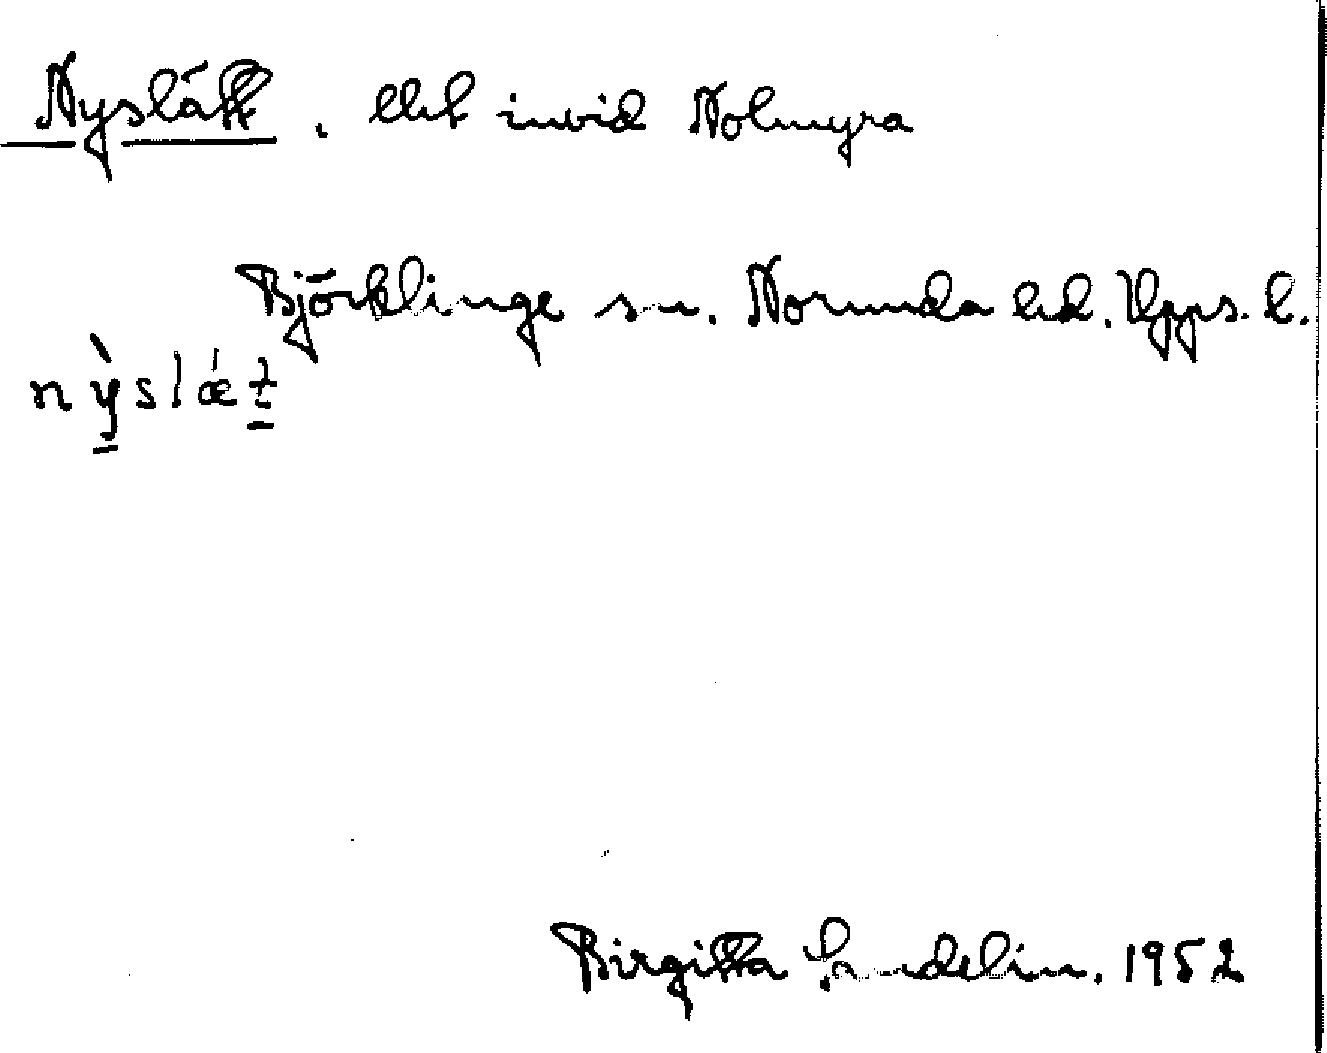 Nyslätt. utsl invid Nolmyra
Björklinge sn. Norunda hd. Upps. l.
nỳslǽt
Birgitta Sundelin. 1952